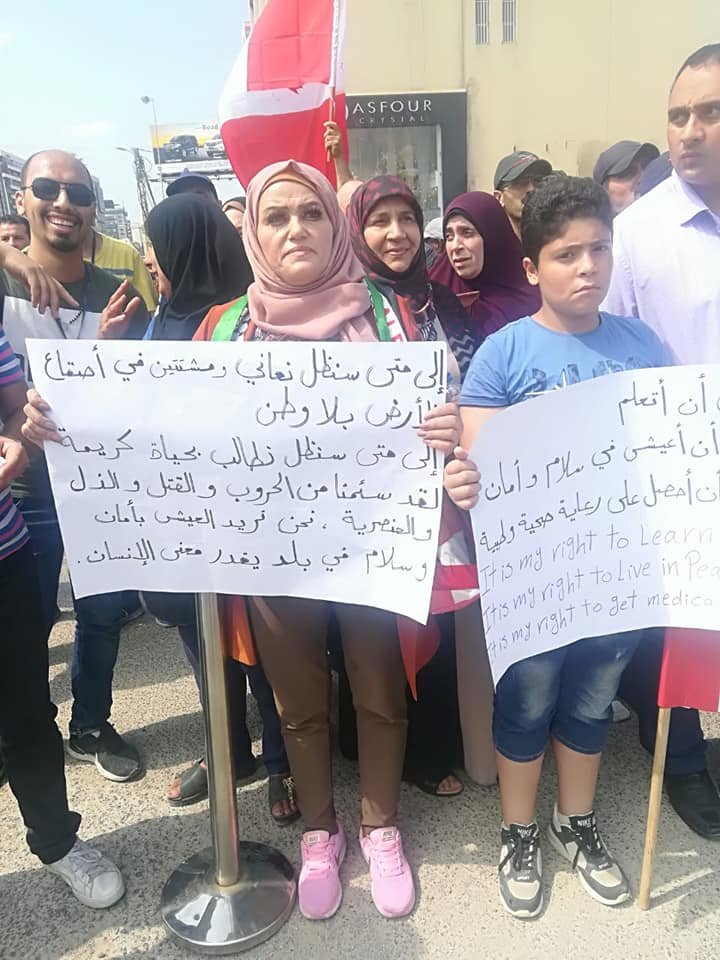 ASFOUR
CRYSTAL
إلى متى سنظل نعاني ومشتتين في أصقاع
الأرض بلا وطن
إلى متى سنظل نطالب بحياة كريمة
لقد سئمنا من الحروب والقتل والذل
والعنصرية ، نحن نريد العيش بأمان
وسلام في بلد يقدر معنى الإنسان .
أن أتعلم
أن أعيش في سلام وأمان
أن أحصل على رعاية صحية وطبية
It is my right to Learn
It is my right to Live in Pea
It is my right to get medica
NIKE